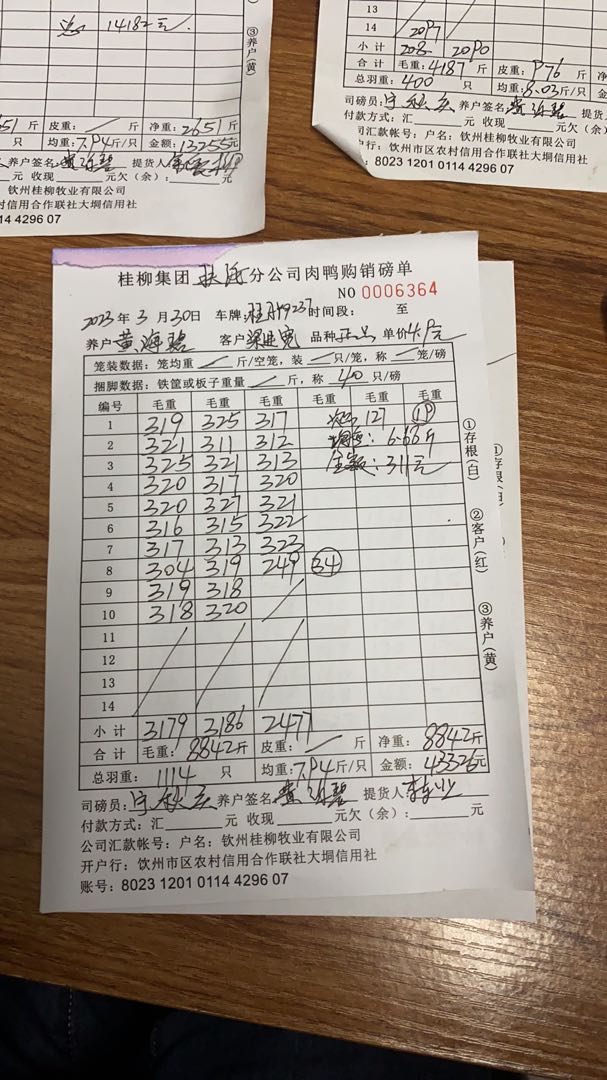 14182元
③养户(黄)
651斤 皮重: 斤 净重:2651斤
只 均重:7.94斤/只 金额:13255元
养户签名: 提货人:
收现 元欠(余): 元
钦州桂柳牧业有限公司
村信用合作联社大垌信用社
0114 4296 07
13
14 2097
小计 208 2090
合计 毛重:4187斤 皮重:976斤
总羽重:400只 均重:8.03斤/只 金额
司磅员: 养户签名:
付款方式:汇 收现 元欠
司汇款帐号:户名:钦州桂柳牧业有限公司
户行:钦州市区农村信用合作联社大垌信用社
8023 1201 0114 4296 07
桂柳集团 分公司肉鸭购销磅单
NO 0006364
2023年3月30日 车牌: 9237 时间段: 至
养户黄海 客户梁 宽 品种正品 单价4.9元
笼装数据:笼均重 斤/空笼,装 只/笼,称 笼/磅
捆脚数据:铁筐或板子重量 斤,称 40 只/磅
编号 毛重 毛重 毛重 毛重 毛重 毛重
1 319 325 317 次品 127 19
2 321 311 312 均重:6.68斤
3 325 321 313 金额:311元
4 320 317 320
5 320 327 321
6 316 315 322
7 317 313 323
8 304 319 249 34
9 319 318
10 318 320
11
12
13
14
小计 3179 3186 2477
合计 毛重:8842斤 皮重: 斤 净重:8842斤
总羽重:1114只 均重:7.94斤/只 金额:43326元
司磅员: 养户签名: 提货人:
付款方式:汇 元 收现 元 欠(余): 元
公司汇款帐号:户名:钦州桂柳牧业有限公司
开户行:钦州市区农村信用合作联社大垌信用社
账号:8023 1201 0114 4296 07
①存根(白)
②客户(红)
③养户(黄)